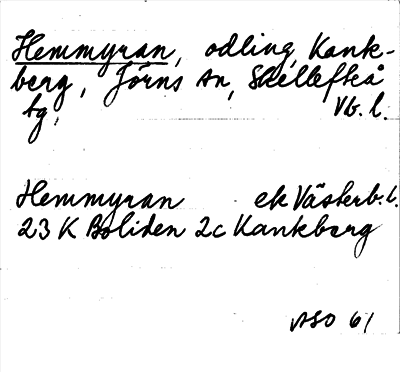 Hemmyran, odling, Kank-
berg, Jörns sn, Skellefteå
tg, Vb. l.
Hemmyran ek Västerb. l.
23 K Boliden 2c Kankberg
ASO 61